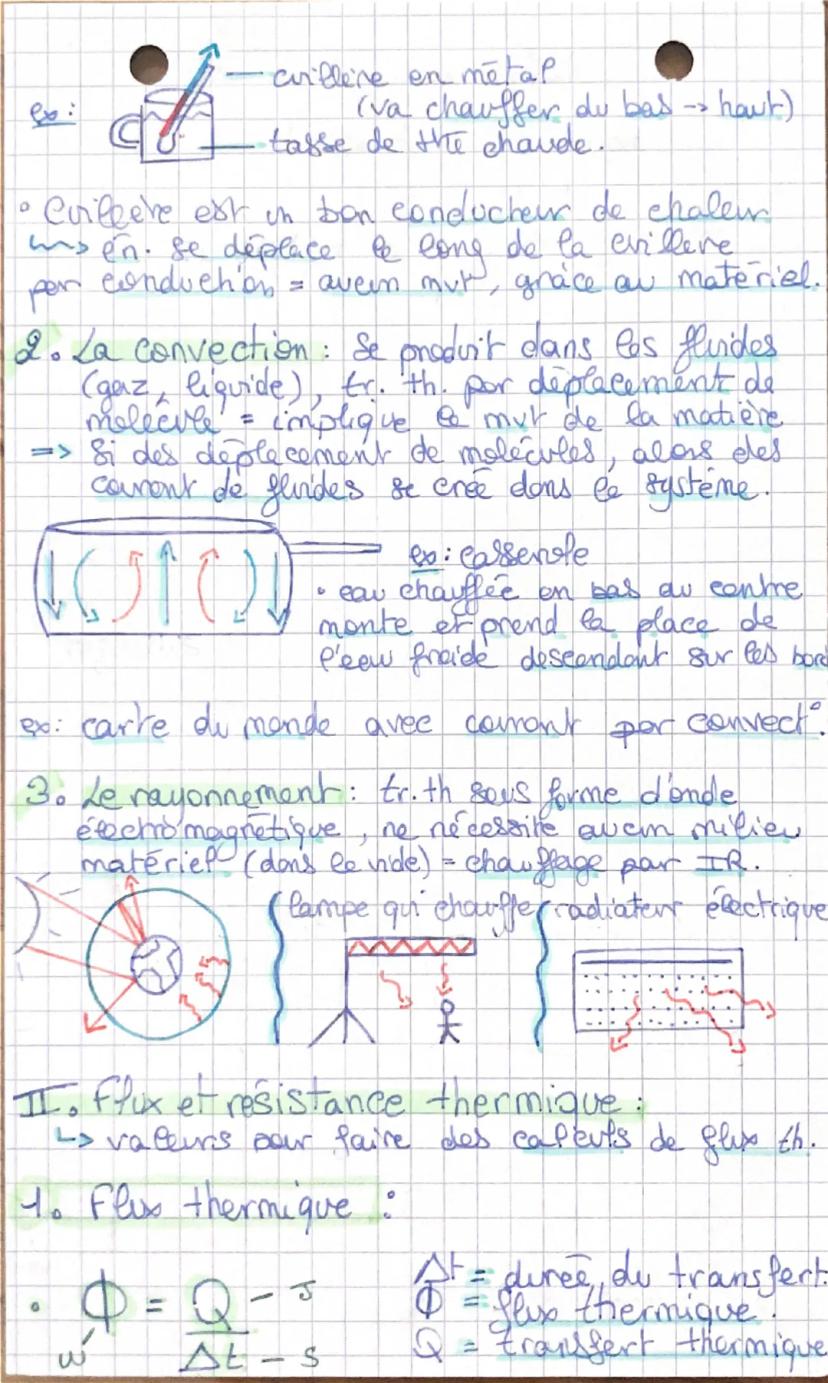 cuillère en métal
ex: (va chauffer du bas -> haut)
tasse de thé chaude.
° Cuillère est un bon conducteur de chaleur
↳ én. se déplace le long de la cuillère
par conduction = aucun mvt, grâce au matériel.
2. La convection : Se produit dans les fluides
(gaz, liquide), tr. th. par déplacement de
molécule = implique le mvt de la matière
=> Si des déplacement de molécules, alors des
courant de fluides se crée dans le système.
ex : casserole
• eau chauffée en bas au centre
monte et prend la place de
l'eau froide descendant sur les bord
ex: carte du monde avec courant par convect°.
3. Le rayonnement : tr. th sous forme d'onde
électromagnétique, ne nécessite aucun milieu
matériel (dans le vide) = chauffage par IR.
lampe qui chauffe radiateur électrique
II. Flux et résistance thermique :
↳ valeurs pour faire des calculs de flux th.
1. Flux thermique :
Δt = durée du transfert.
• Φ = Q - J
Φ = flux thermique.
W Δt - s
Q = transfert thermique